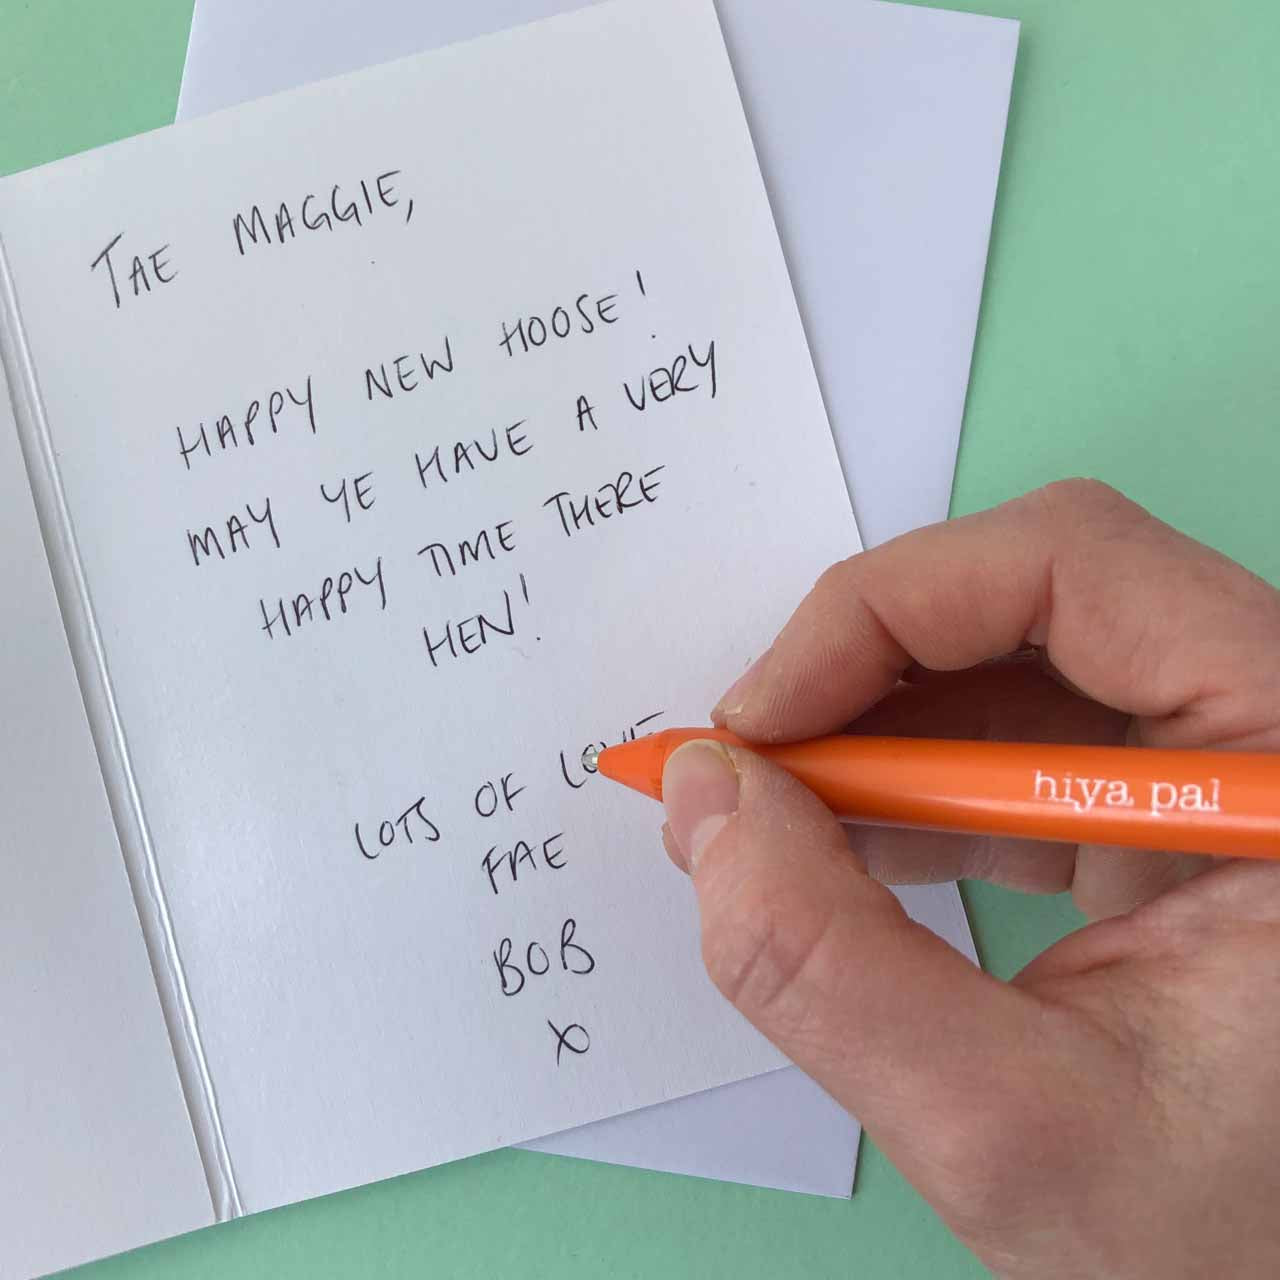 TAE MAGGIE,
HAPPY NEW HOOSE!
MAY YE HAVE A VERY
HAPPY TIME THERE
HEN!
LOTS OF LOVE
FAE
BOB
X
hiya pal